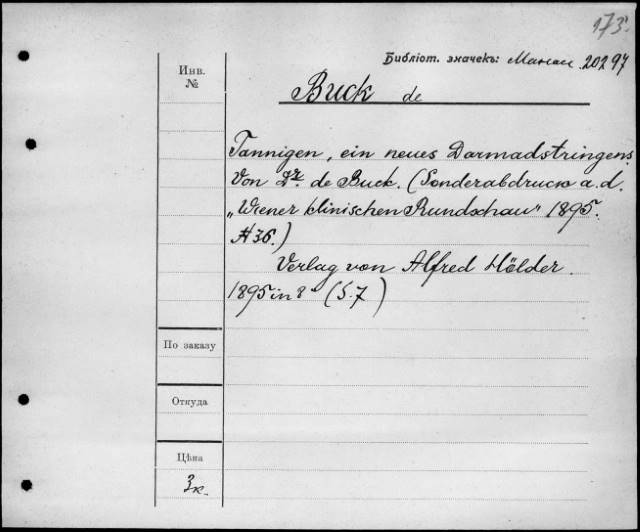 173.
Библіот. значекъ: Магаз. 20297
Инв.
№
Buck de
Tannigen, ein neues Darmadstringens.
Von Dr. de Buck. (Sonderabdruck a. d.
„Wiener klinischen Rundschau" 1895.
№ 36.)
Verlag von Alfred Hölder.
1895 in 8° (S. 7)
По заказу
Откуда
Цѣна
3к.